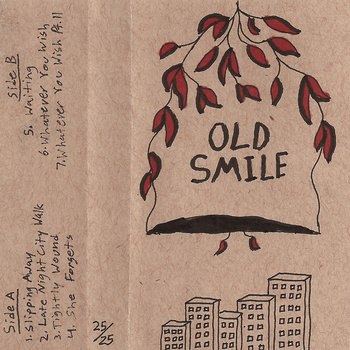 Side A
1. Slipping Away
2. Late Night City Walk
3. Tightly Wound
4. She Forgets
Side B
5. Waiting
6. Whatever You Wish
7. Whatever You Wish Pt. II
25/25
OLD
SMILE